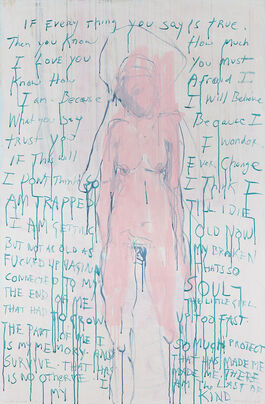 IF EVERY THING YOU SAY IS TRUE.
Then you Know How much
I LOVE you You Must
Know How Afraid I
I am - Because I Will Believe
What you Say Because I
trust you I Wonder
IF This will Ever Change
I DON'T Think So I Think I
AM TRAPPED TILL I DIE
I AM GETTING OLD NOW
BUT NOT AS OLD AS MY BROKEN
FUCKED UP VAGINA THATS SO
CONNECTED TO MY SOUL
THE END OF ME THE LITTLE GIRL
THAT HAD TO GROW UP TOO FAST
THE PART OF ME I SO MUCH PROTECT
IS MY MEMORY AND THAT HAS MADE ME
SURVIVE - THAT HAS MADE ME. THERE
IS NO OTHER ME. I AM THE LAST OF
MY KIND